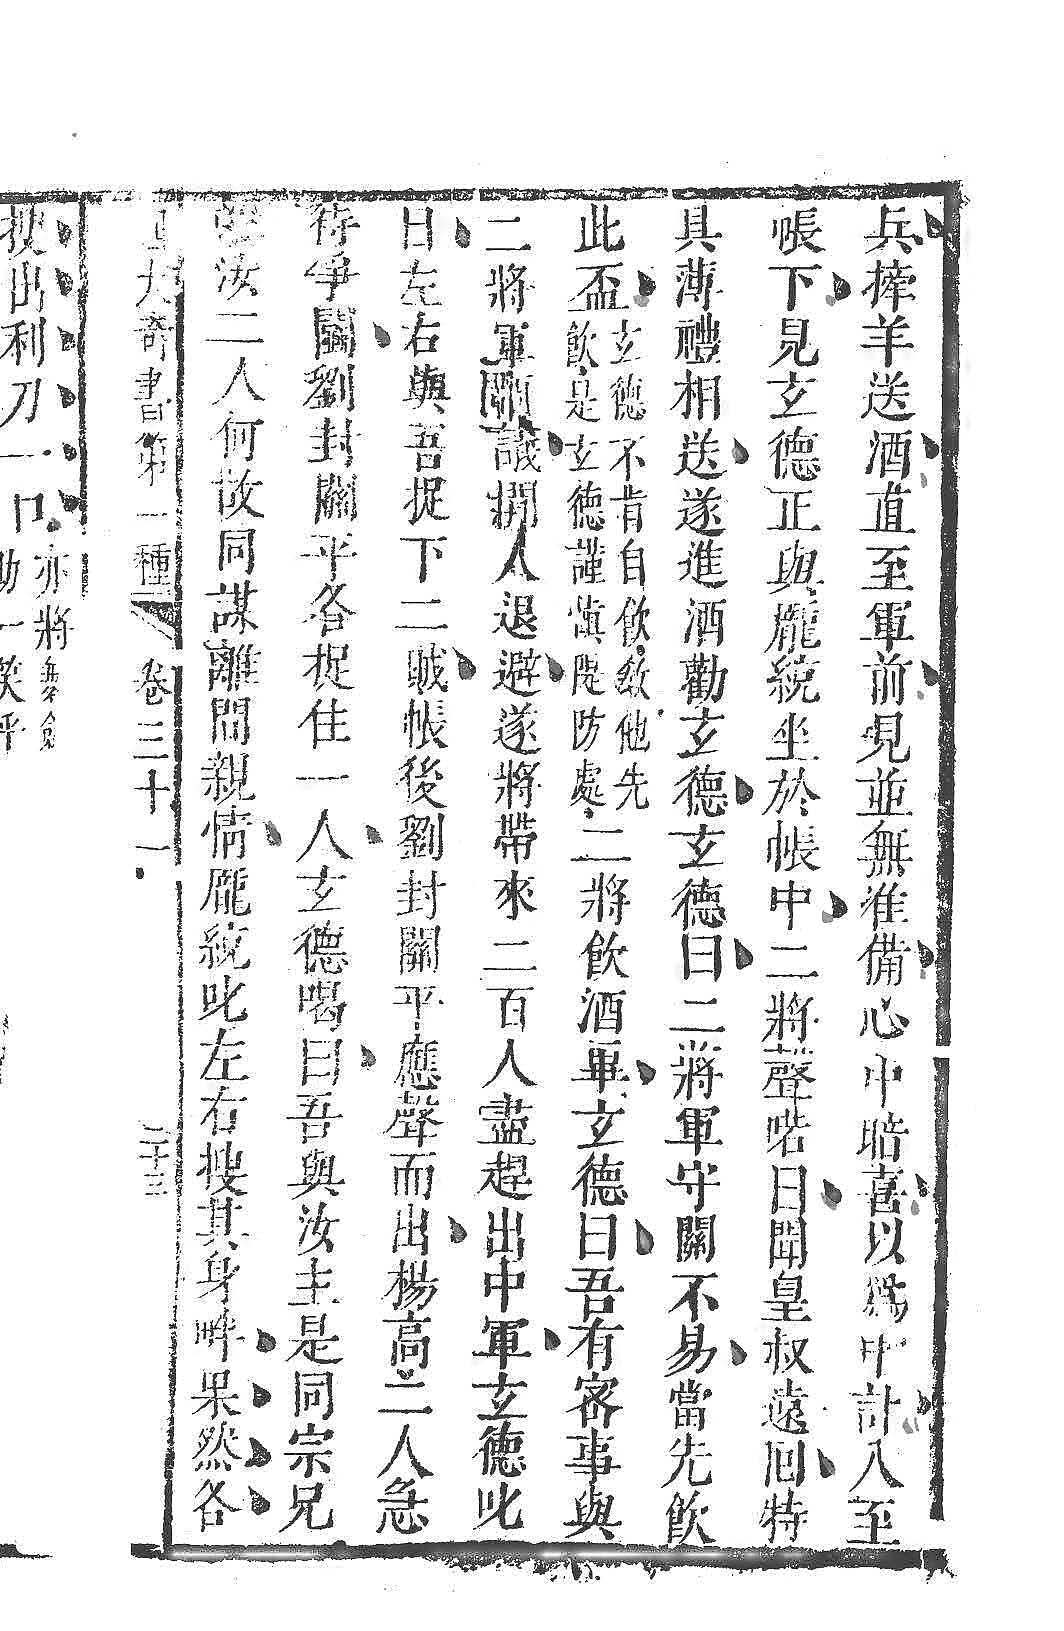 兵捧羊送酒直至軍前見並無准備心中暗喜以為中計入至
帳下見玄德正與龐統坐於帳中二將聲喏曰聞皇叔遠回特
具薄禮相送遂進酒勸玄德玄德曰二將軍守關不易當先飲
此盃玄德不肯自飲教他先
飲是玄德謹慎隄防處二將飲酒畢玄德曰吾有密事與
二將軍商議閒人退避遂將帶來二百人盡趕出中軍玄德叱
曰左右與吾捉下二賊帳後劉封關平應聲而出楊高二人急
待爭鬬劉封關平各捉住一人玄德喝曰吾與汝主是同宗兄
汝二人何故同謀離間親情龐統叱左右搜其身畔果然各
大奇書第一種 卷三十一 二十三
搜出利刀一口亦將
一笑